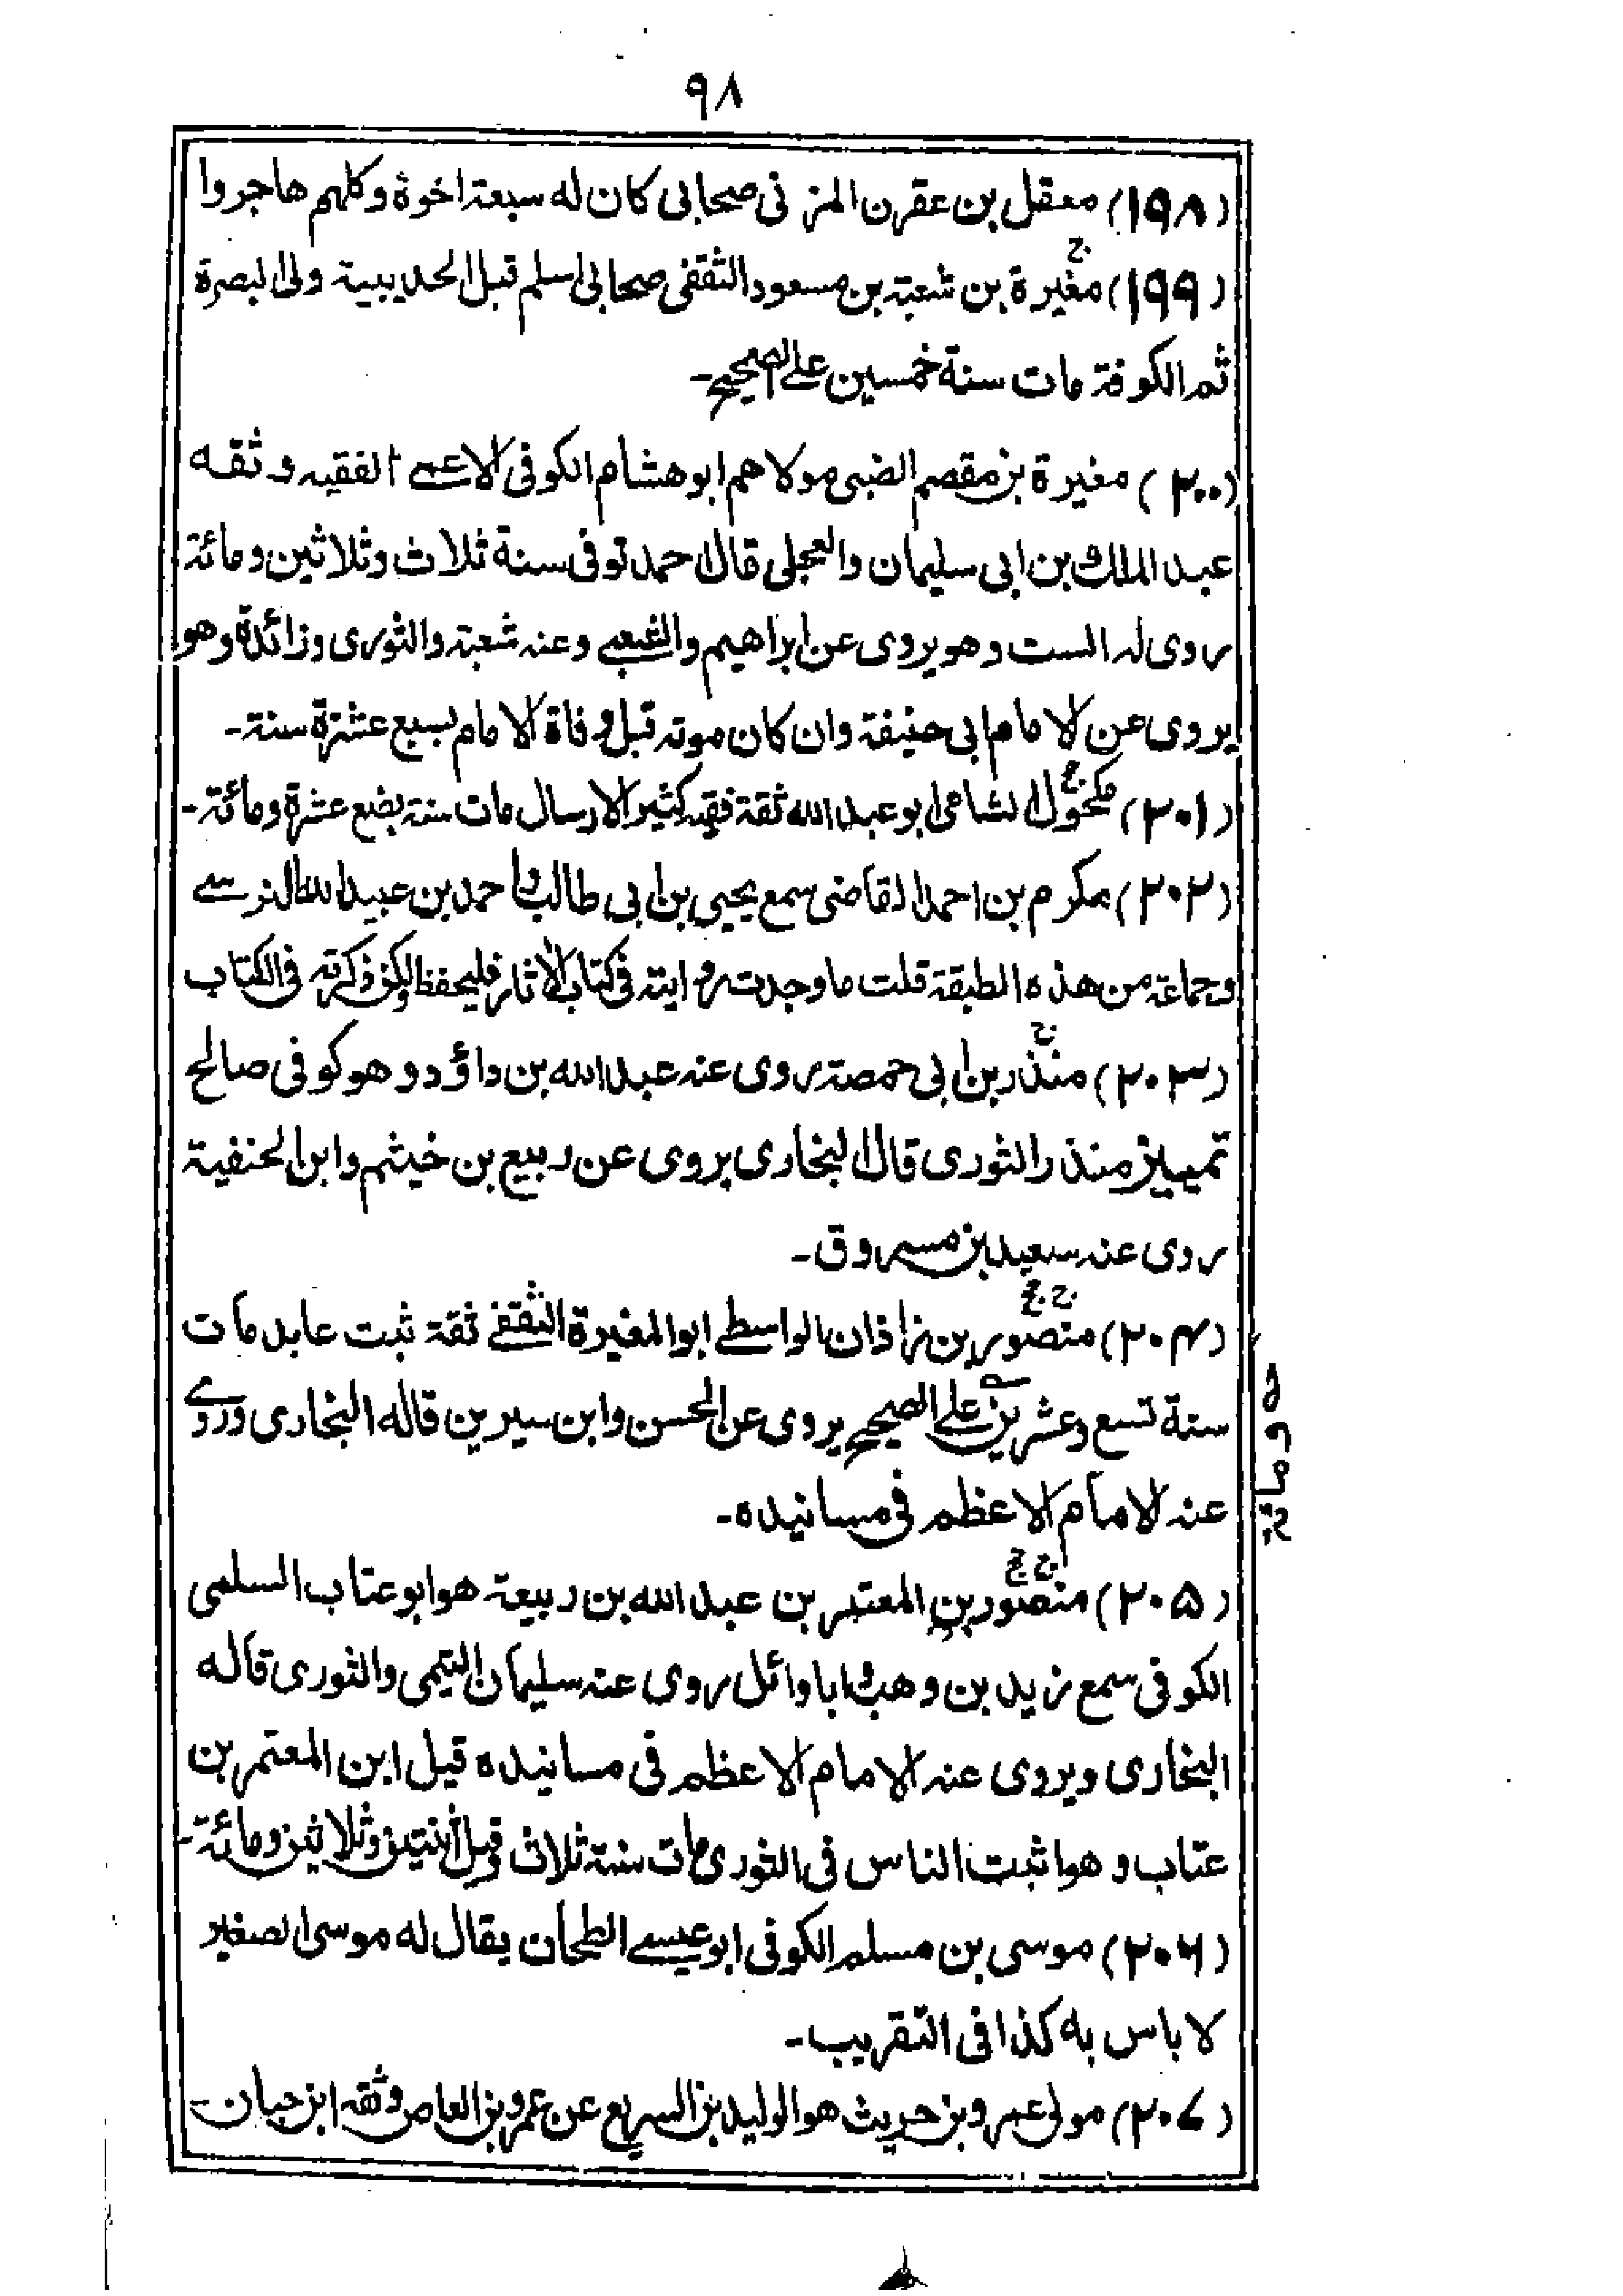 ٩٨
(١٩٨) معقل بن عقرن المزنی صحابی کان له سبعة اخوة وکلهم هاجروا
(١٩٩) مغیرة بن شعبة بن مسعود الثقفی صحابی اسلم قبل الحدیبیة ولی البصرة
ثم الکوفة مات سنة خمسین علی الصحیح۔
(٢٠٠) مغیرة بن مقصم الضبی مولاهم ابو هشام الکوفی الاعمی الفقیه وثقه
عبد الملك بن ابی سلیمان والعجلی قال احمد توفی سنة ثلاث وثلاثین ومائة
روی له الست وهو یروی عن ابراهیم والشعبی وعنه شعبة والثوری وزائدة وهو
یروی عن الامام ابی حنیفة وان کان موته قبل وفاة الامام بسبع عشرة سنة۔
(٢٠١) مکحول الشامی ابو عبد الله ثقة فقیه کثیر الارسال مات سنة بضع عشرة ومائة۔
(٢٠٢) مکرم بن احمد القاضی سمع یحیی بن ابی طالب واحمد بن عبید الله النرسی
وجماعة من هذه الطبقة قلت ما وجدت روایته فی کتاب الآثار فلیحفظ ولکن ذکرته فی الکتاب
(٢٠٣) منذر بن ابی حمصة روی عنه عبد الله بن داؤد وهو کوفی صالح
تمییز منذر الثوری قال البخاری یروی عن ربیع بن خیثم وابن الحنفیة
روی عنه سعید بن مسروق۔
(٢٠٤) منصور بن زاذان الواسطی ابو المغیرة الثقفی ثقة ثبت عابد مات
سنة تسع وعشرین علی الصحیح یروی عن الحسن وابن سیرین قاله البخاری وروی
ومائة
عنه الامام الاعظم فی مسانیده۔
(٢٠٥) منصور بن المعتمر بن عبد الله بن ربیعة هو ابو عتاب السلمی
الکوفی سمع زید بن وهب وابا وائل روی عنه سلیمان التیمی والثوری قاله
البخاری ویروی عنه الامام الاعظم فی مسانیده قیل ابن المعتمر بن
عتاب وهو اثبت الناس فی الثوری مات سنة ثلاث وقیل اثنتین وثلاثین ومائة۔
(٢٠٦) موسی بن مسلم الکوفی ابو عیسی الطحان یقال له موسی الصغیر
لا باس به کذا فی التقریب۔
(٢٠٧) مولی عمرو بن حریث هو الولید بن السریع عن عمرو بن العاص وثقه ابن حبان۔